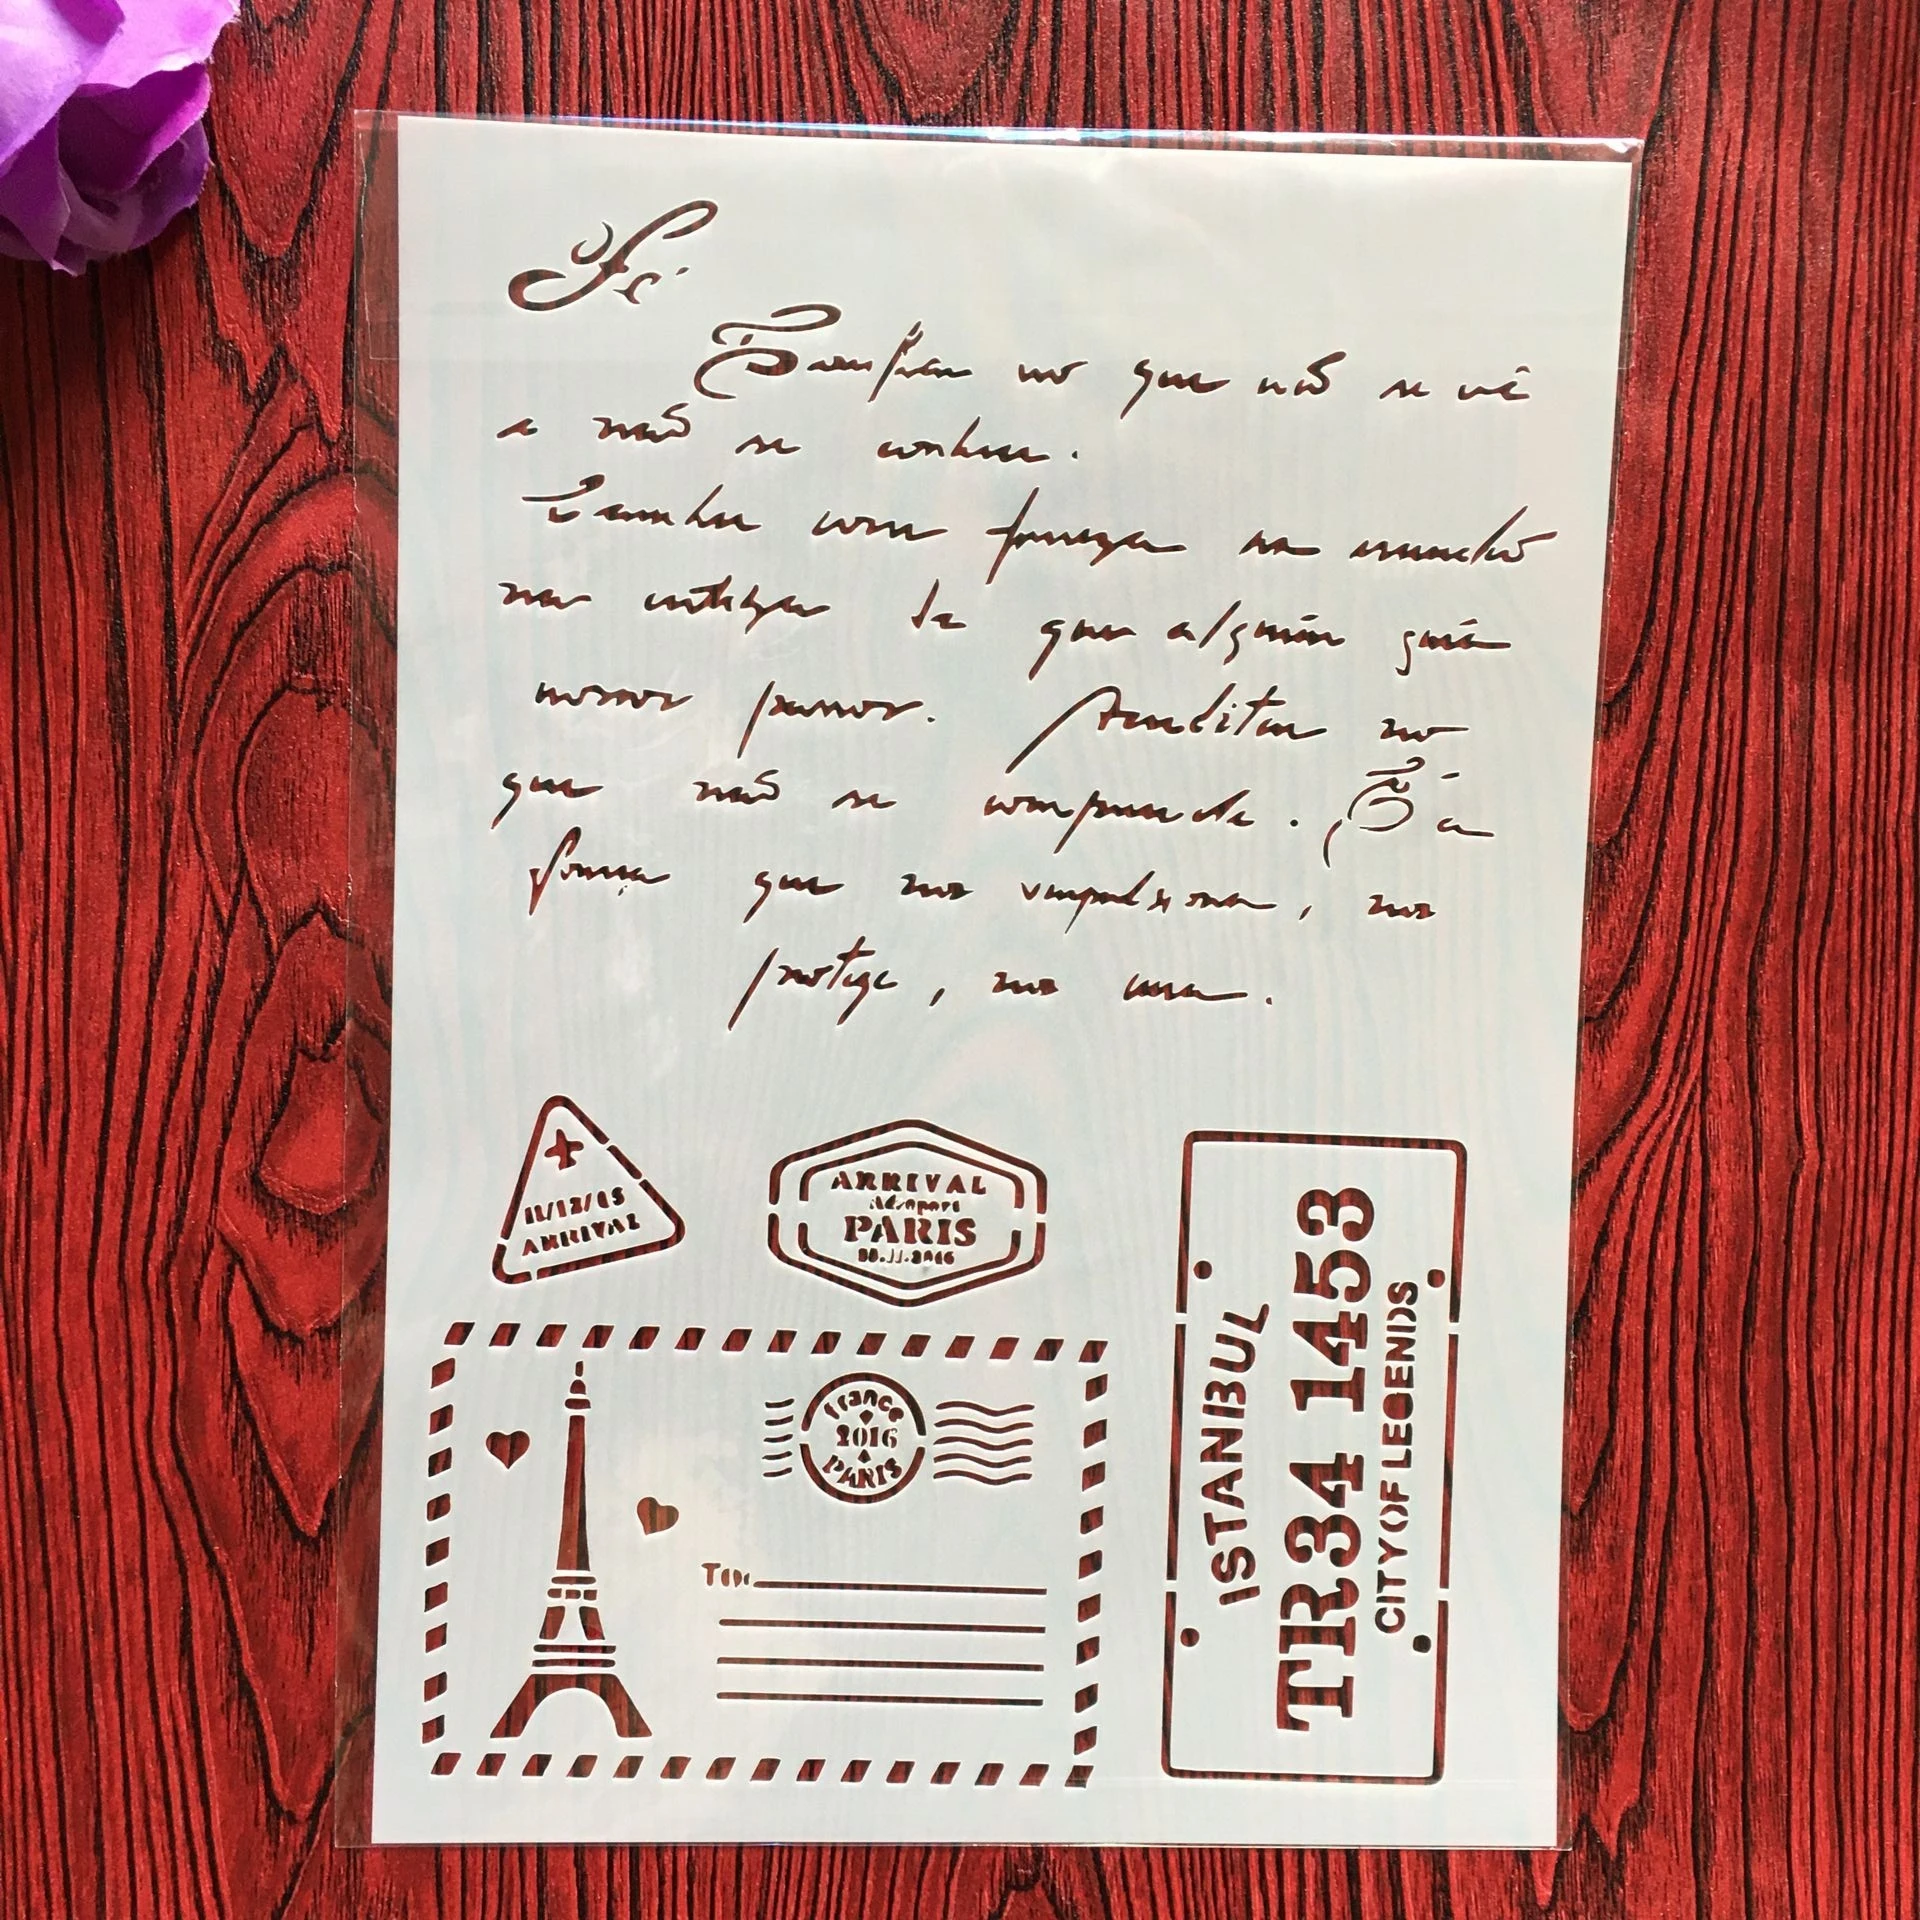 Fé
Confiar no que não se vê
e não se conhece.
Caminhar com firmeza na
na certeza de que alguém guia
nossos passos. Acreditar no
que não se compreende. É a
força que nos impulsiona, nos
protege, nos
11/12/15
ARRIVAL
ARRIVAL
Aéroport
PARIS
france
2016
PARIS
To:
ISTANBUL
TR34 1453
CITY OF LEGENDS